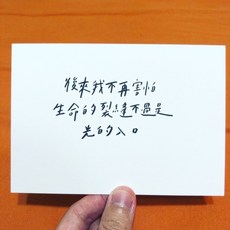 後來我不再害怕
生命的裂縫不過是
光的入口